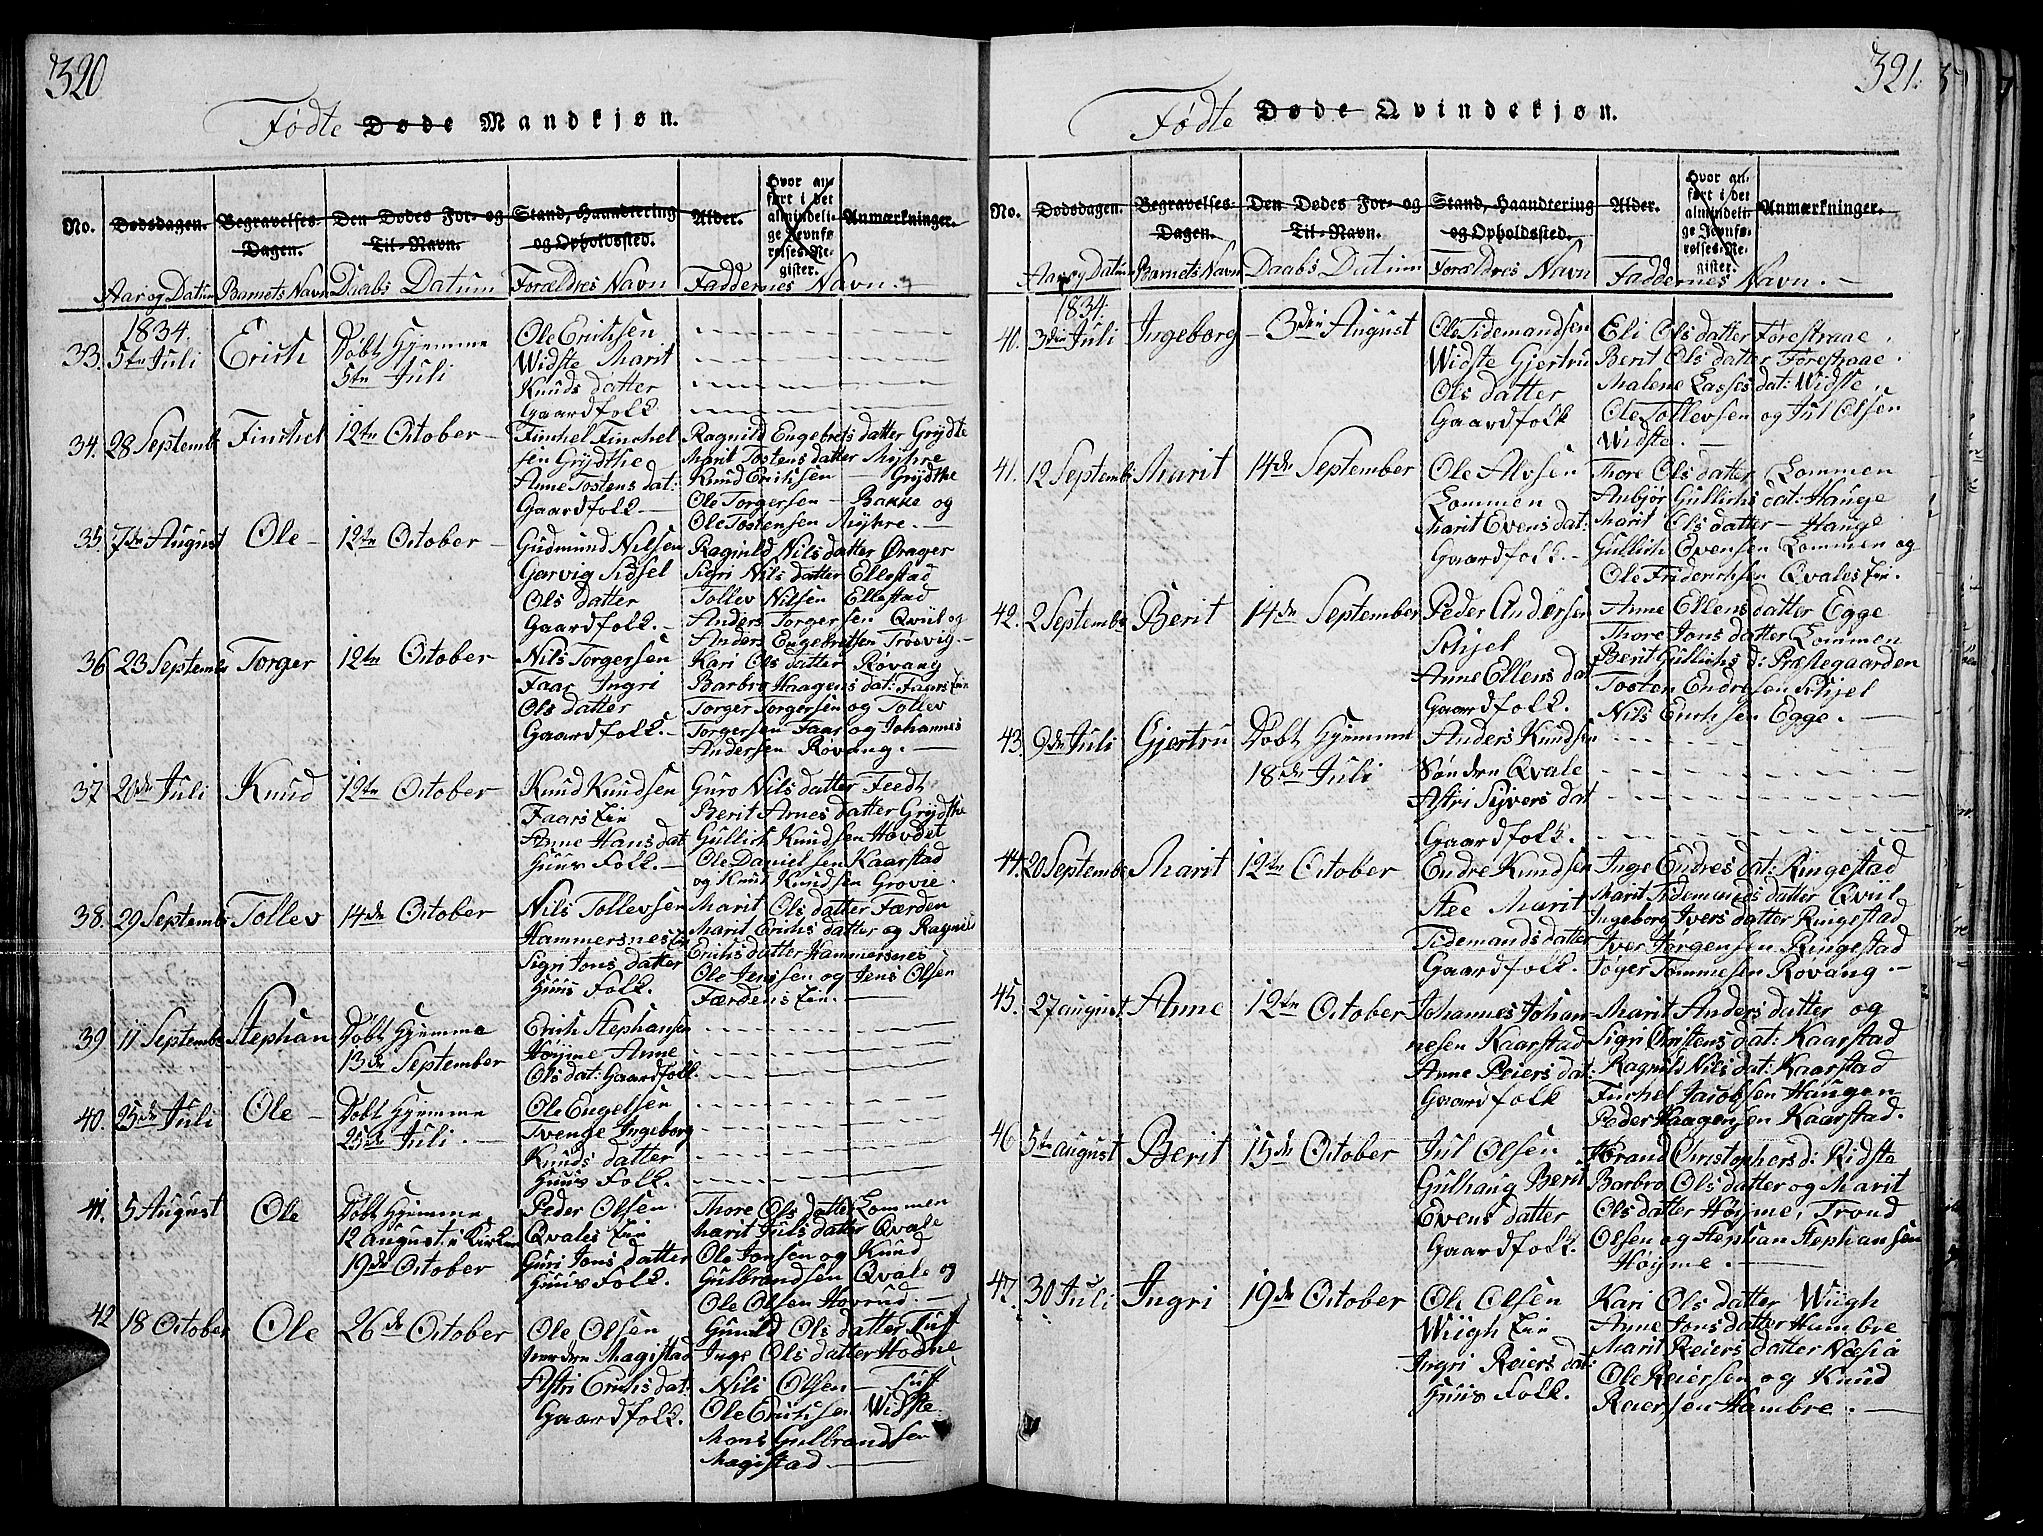 320
Fødte Døde Mandkjøn.
No. Dødsdagen. Begravelses-Dagen. Den Dødes For- og Til-Navn. Stand, Haandtering og Opholdssted. Alder. Hvor anført i det almindelige Jevnførelses-Register. Anmærkninger.
Aar og Datum Barnets Navn Daabs Datum Forældres Navn Faddernes Navn.
1834.
33. 5te Juli Erich Døbt Hjemme 5te Juli
Ole Erichsen
Widste Marit
Knuds datter
Gaardfolk
34. 28 Septembr Finchel 12te October
Finchel Finchel
sen Grydthe
Anne Tostens dat:
Gaardfolk
Ragnild Engebrets datter Grydte
Marit Tostens datter Myhre
Knud Erichsen Grydthe
Ole Torgersen - Bakke og
Ole Tostensen Myhre.
35. 7de August Ole 12te October
Gudmund Nilsen
Garvig Sidsel
Ols datter
Gaardfolk.
Ragnild Nils datter Qrager
Sigri Nils datter Ellestad
Tollev Nilsen Ellestad
Anders Torgersen Qviil og
Anders Engebretsen Trosvig
36 23 Septembr Torger 12te October
Nils Torgersen
Faar Ingri
Ols datter
Gaardfolk.
Kari Ols datter Røvang
Barbro Haagens dat: Faars Eie
Torger Torgersen og Tollev
Torgersen Faar og Johannes
Andersen Røvang.
37 20de Juli Knud 12te October
Knud Knudsen
Faars Eie
Anne Hans dat
Huus Folk.
Guro Nils datter Feedt
Berit Arnes datter Grydthe
Gullich Knudsen Hovdet
Ole Danielsen Kaarstad
og Knud Knudsen Grovie.
38. 29 Septembr Tollev 14de October
Nils Tollevsen
Hammersnes E
Sigri Jons datter
Huus Folk.
Marit Ols datter Færden
Marit Erichs datter og Ragnild
Erichs datter Hammersnes
Ole Jenssen og Jens Olsen
Færdens Eie.
39 11 Septembr Stephan Døbt Hjemme 13de September
Erich Stephansen
Høyme Anne
Ols dat: Gaardfolk.
40. 25de Juli Ole Døbt Hjemme 25de Juli.
Ole Engelsen
Tvenge Ingeborg
Knuds datter
Huus Folk.
41. 5 August Ole Døbt Hjemme 12 August i Kirken 19de October
Peder Olsen
Qvales Eie
Guri Jons datter
Huus Folk.
Thore Ols datter Lommen
Marit Juls datter Qvale
Ole Jonsen og Knud
Gulbrandsen Qvale og
Ole Olsen Hovrud.
42 18 October Ole 26de October
Ole Olsen
Magistad
Astri Erichs dat:
Gaardfolk.
Gunild Ols datter Tuff
Inge Ols datter Hodne
Nils Olsen Tuff
Ole Erichsen Widste
Mons Gulbrandsen
Magistad
321.
Fødte Døde Qvindekjøn.
No. Dødsdagen. Begravelses-Dagen. Den Dødes For- og Til-Navn. Stand, Haandtering og Opholdssted. Alder. Hvor anført i det almindelige Jevnførelses-Register. Anmærkninger.
Aar og Datum Barnets Navn Daabs Datum Forældres Navn Faddernes Navn.
1834.
40. 3de Juli Ingeborg 3die August
Ole Tidemandsen
Widste Gjertru
Ols datter
Gaardfolk
Eli Ols datter Førestraae
Berit Ols datter Førestraae
Malene Lasses dat: Widste
Ole Tollevsen og Jul Olsen
Widste.
41. 12 Septembr Marit 14de September
Ole Alvsen
Lommen
Marit Evens dat:
Gaardfolk.
Thore Ols datter Lommen
Anbjør Gullichs dat: Hauge
Marit Ols datter Hauge
Gullich Evensen Lommen og
Ole Friderichsen Qvales Eie.
42. 2 Septembr Berit 14de September
Peder Andersen
Schjel
Anne Ellens dat
Gaardfolk.
Anne Ellens datter Egge
Thore Jons datter Lommen
Berit Gullichs d: Præstegaarden
Tosten Endresen Schjel
Nils Erichsen Egge.
43. 9de Juli Gjertru Døbt Hjemme 18de Juli
Anders Knudsen
Søndre Qvale
Astri Syvers dat
Gaardfolk.
44. 20 Septembr Marit 12te October
Endre Knudsen
Stee Marit
Tidemands datter
Gaardfolk.
Inge Endres dat: Ringestad
Marit Tidemands datter Qviil
Ingeborg Ivers datter Ringestad
Iver Jørgensen Ringestad
Tøger Tommesen Røvang.
45. 27 august Anne 12te October
Johannes Johan
nesen Kaarstad
Anne Peiers dat:
Gaardfolk
Marit Anders datter og
Sigri Christens dat: Kaarstad
Ragnild Nils dat: Kaarstad
Finchel Jacobsen Haugen
Peder Haagensen Kaarstad.
46 5te august Berit 15de October
Jul Olsen
Gulhaug Berit
Evens datter
Gaardfolk.
Christophers d: Ridste
Barbro Ols datter og Marit
Ols datter Høyme, Trond
Olsen og Stephan Stephansen
Høyme.
47. 30 Juli Ingri 19de October
Ole Olsen
Wiigh Eie
Ingri Reiers dat:
Huus Folk.
Kari Ols datter Wiigh
Anne Jons datter Hambre
Marit Reiers datter Næsia
Ole Reiersen og Knud
Reiersen Hambre.